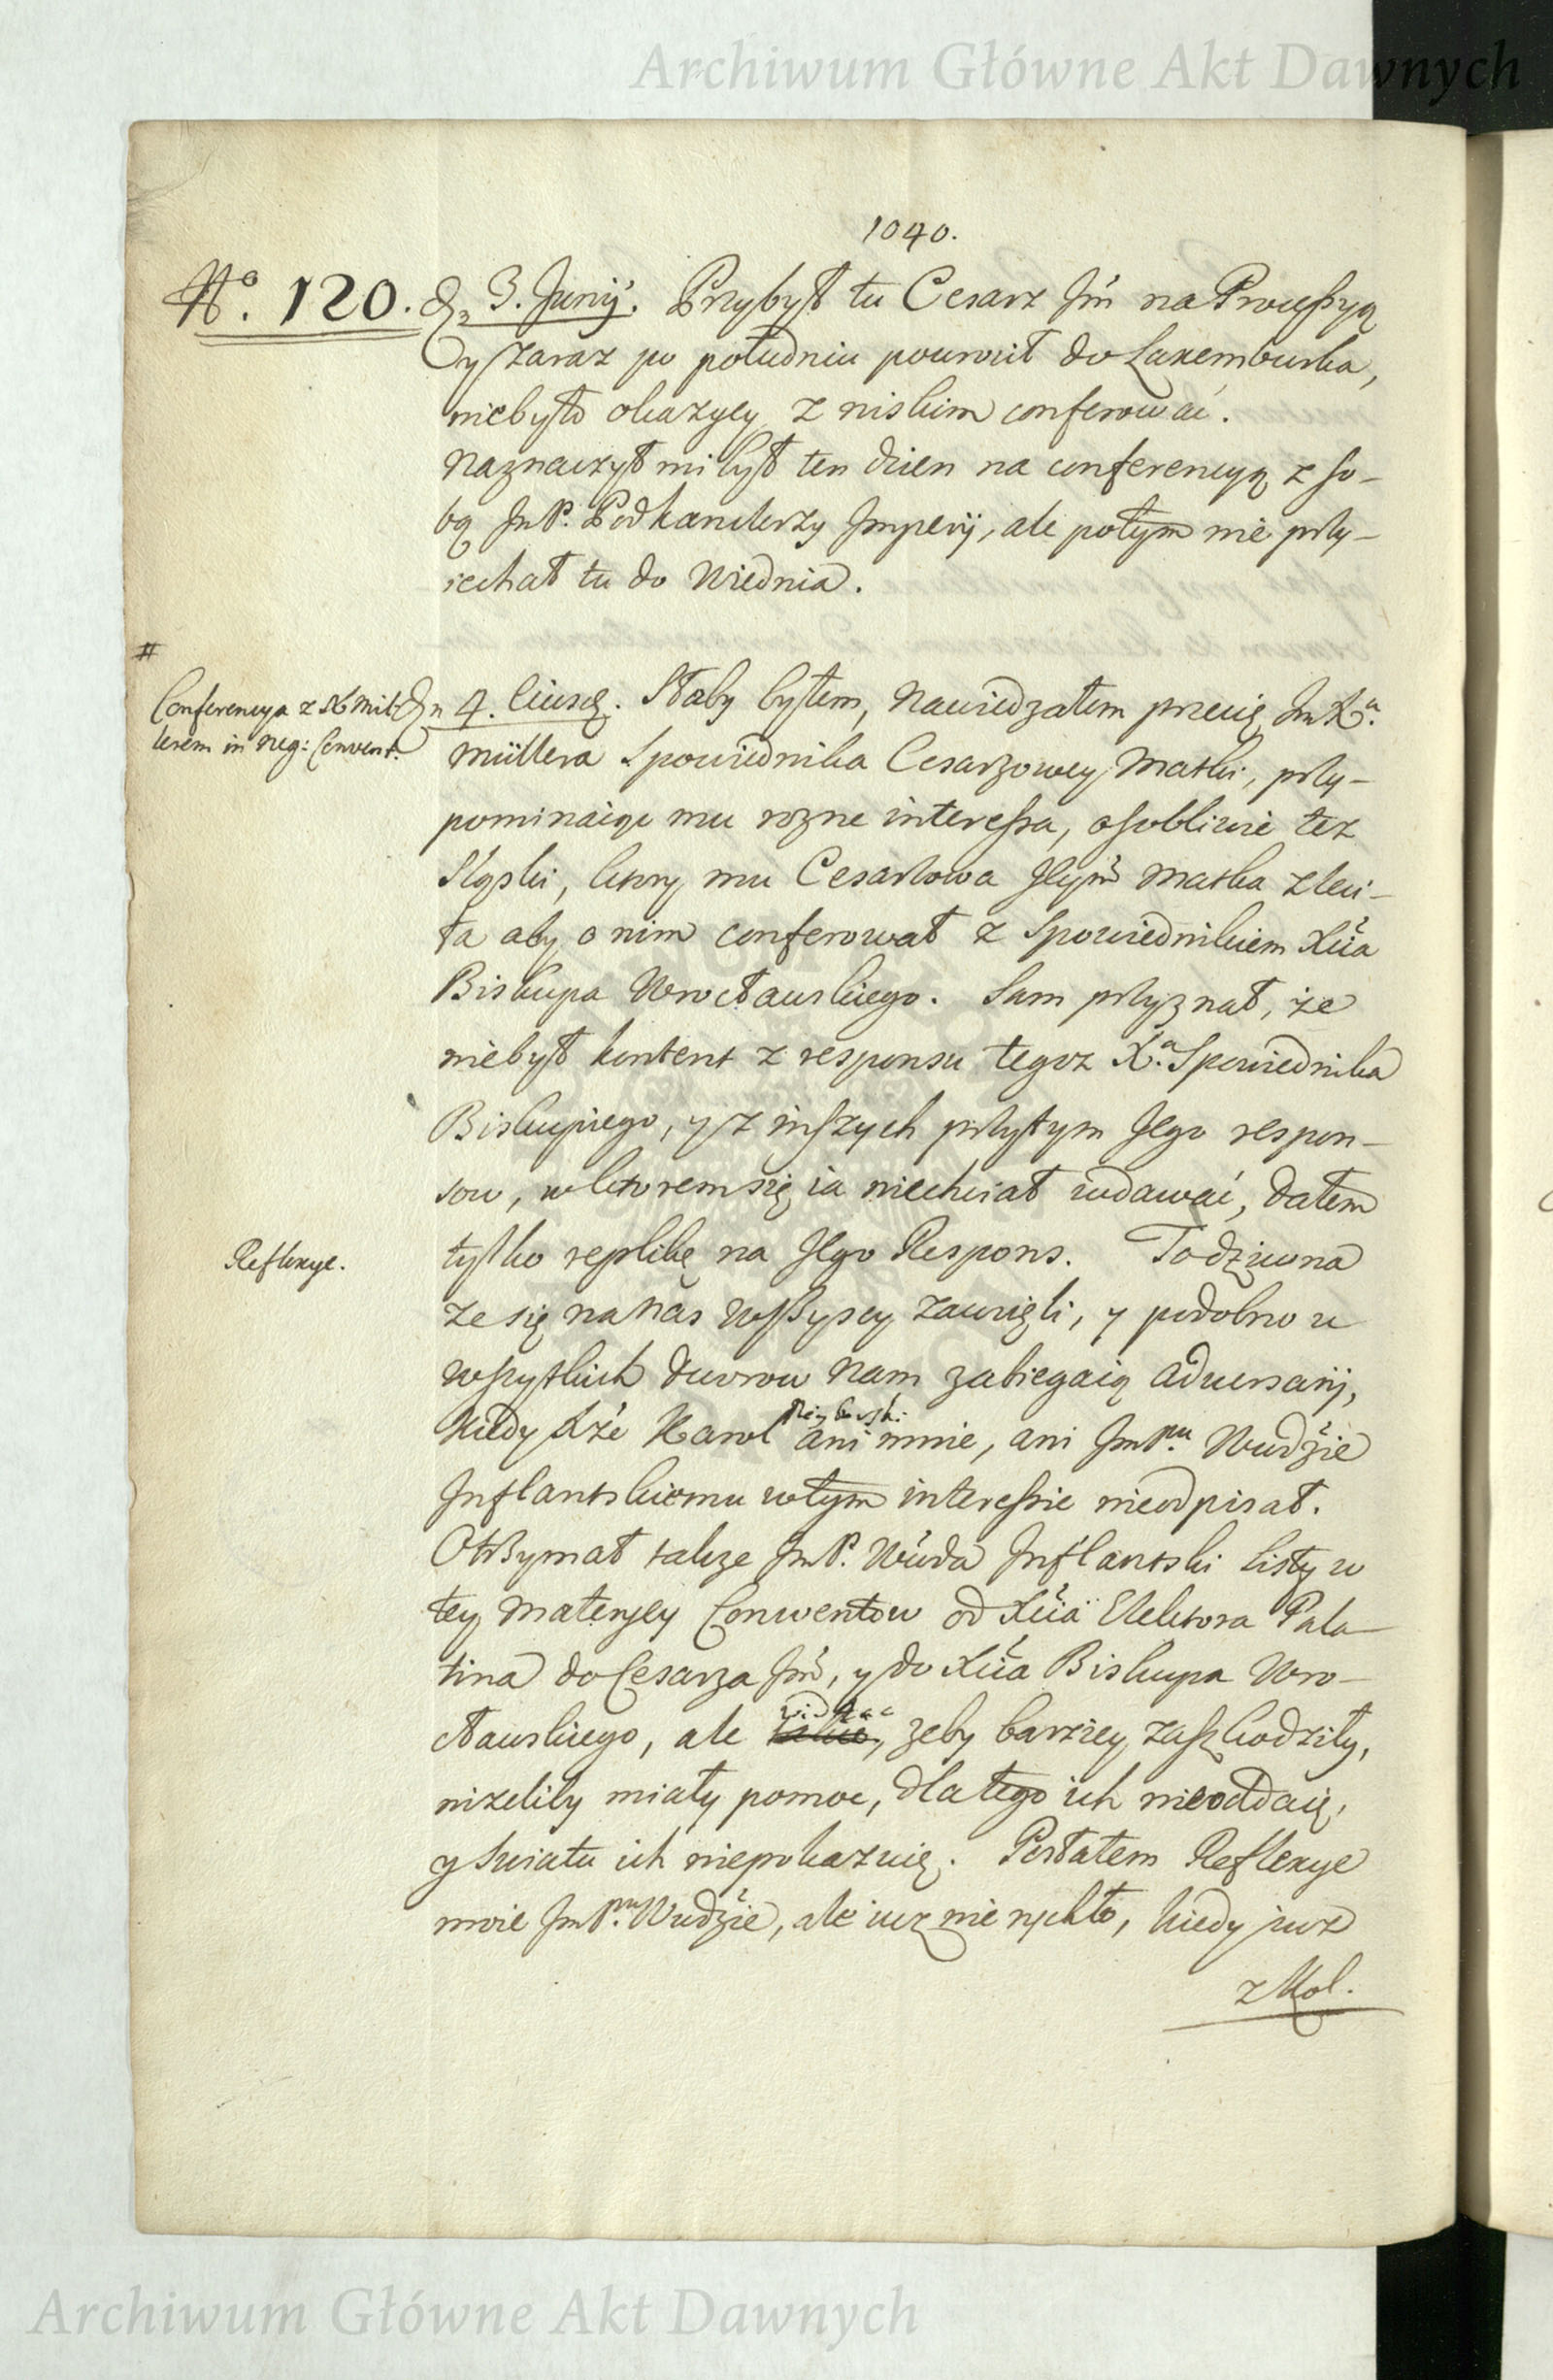 Archiwum Główne Akt Dawnych
1040.
No. 120. Dn 3. Junij. Przybył tu Cesarz Jm na Processyą
y zaraz po południu powrócił do Laxemburka,
niebyło okazyey z niskim conferować.
Naznaczył mi był ten dzien na conferencyą z so-
bą JmP. Podkanclerzy Imperij, ale potym nie przy-
iechał tu do Wiednia.
#
Conferencya z X Mil-
lerem in neg: Convent.
Dn 4. Eiusd. Słaby byłem, nawiedzałem przecię Jm Xa.
Müllera Spowiednika Cesarzowey Matki, przy-
pominaiąc mu rozne interessa, osobliwie tez
Sląski, ktory mu Cesarzowa Jeym Matka zleci-
ła aby o nim conferował z Spowiednikiem Xcia
Biskupa Wrocławskiego. Sam przyznał, że
niebył kontent z responsu tegoz Xa. Spowiednika
Biskupiego, y z inszych przytym Jego respon-
sow, w ktorem się ia niechciał wdawać, dałem
Reflexye.
tylko replikę na Jego Respons. To dziwna
ze się na nas wszyscy zawzięli, y podobno u
wszytkich dworow nam zabiegaią adversarij,
kiedy Xże Karol Neyburski ani mnie, ani JmPnu Wudzie
Inflantskiemu w tym interessie nieodpisał.
Otrzymał takze JmP. Wda Inflantski listy w
tey materyey Conwentow od Xcia Elektora Pala-
tina do Cesarza Jm, y do Xcia Biskupa Wro-
cławskiego, ale widząc, zeby barziey zaszkodziły,
nizeliby miały pomoc, dla tego ich nieoddaię,
y swiatu ich niepokazuię. Posłałem Reflexye
moie JmPnu Wudzie, ale iuz nie rychło, kiedy iuz
z Kol.
Archiwum Główne Akt Dawnych